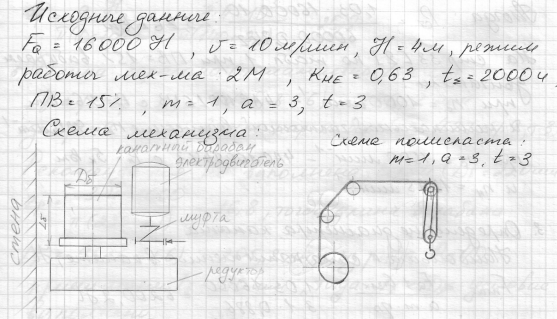 Исходные данные:
F_Q = 16000 Н, v = 10 м/мин, H = 4м, режим
работы мех-ма 2М, K_HE = 0,63, t_Σ = 2000ч,
ПВ = 15%, m = 1, a = 3, t = 3
Схема механизма:
канатный барабан
электродвигатель
Dб
Lб
муфта
стена
редуктор
Схема полиспаста:
m=1, a=3, t=3